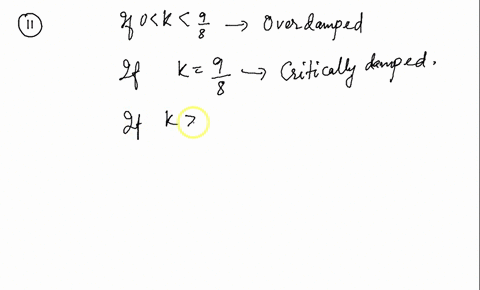 11 If 0<k<9/8 → Overdamped
If k = 9/8 → Critically damped.
If k >